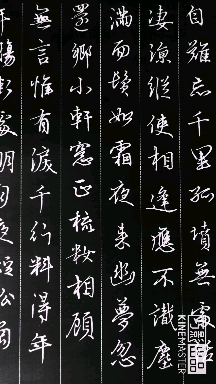 自難忘千里孤墳無處話
淒涼縱使相逢應不識塵
滿面鬢如霜夜來幽夢忽
還鄉小軒窗正梳妝相顧
無言惟有淚千行料得年
年腸斷處明月夜短松岡
KINEMASTER